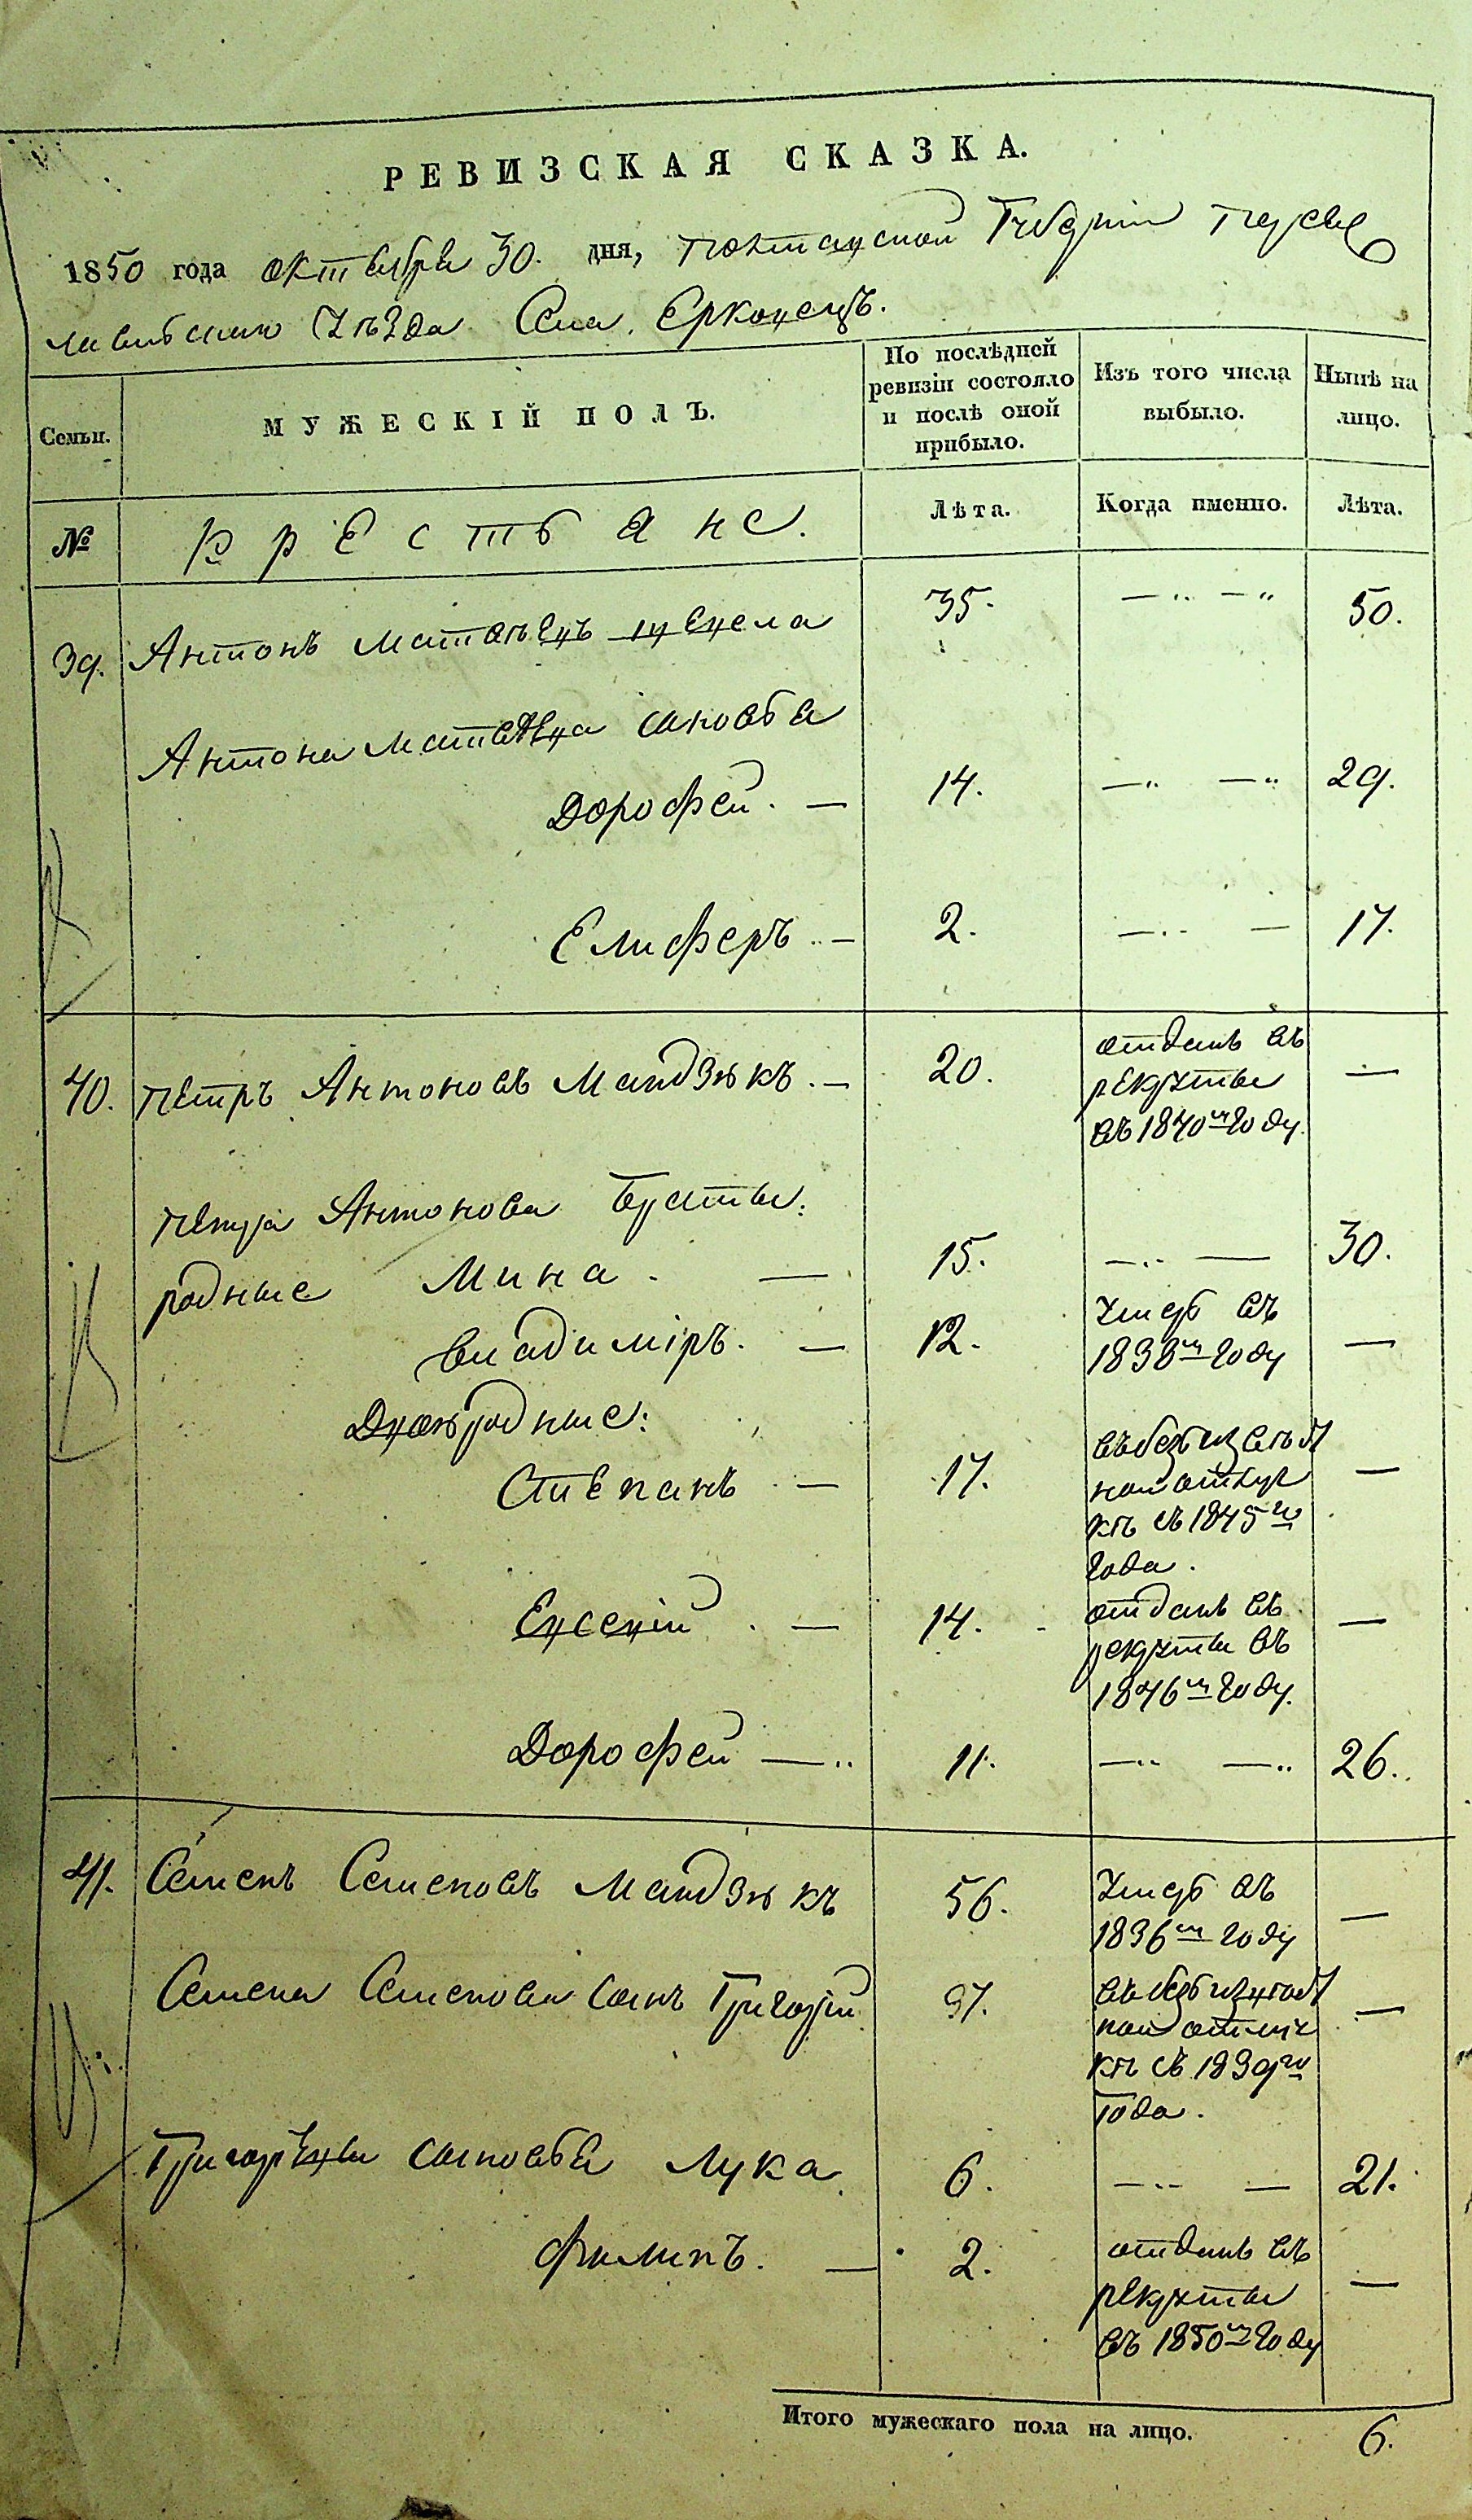 РЕВИЗСКАЯ СКАЗКА.
1850 года октября 30. дня, Полтавской Губерніи Переяс
лавскаго Уѣзда Села Ерковецъ.
Семьи.
МУЖЕСКІЙ ПОЛЪ.
По послѣдней ревизіи состояло и послѣ оной прибыло.
Изъ того числа выбыло.
Нынѣ на лицо.
№
Крестьяне.
Лѣта.
Когда именно.
Лѣта.
39. Антонъ Матвѣевъ 35. — „ — „ 50.
Антона Матвѣева сыновья
Дорофей. — 14. — „ — „ 29.
Елиферъ — 2. — „ — 17.
40. Петръ Антоновъ Мандзюкъ. — 20. отданъ въ —
рекруты
въ 1840м году.
Петра Антонова братья:
родные Мина. — 15. — „ — 30.
Владиміръ. — 12. Умеръ въ —
1838м году
Двоюродные:
Степанъ — 17. въ безъизвѣст —
ной отлуч
кѣ съ 1845го
года.
Евсевій. — 14. отданъ въ —
рекруты въ
1846м году.
Дорофей — 11. — „ — „ 26.
41. Семенъ Семеновъ Мандзюкъ 56. Умеръ въ —
1836м году
Семена Семенова сынъ Григорій 37. въ безъизвѣст —
ной отлуч
кѣ съ 1839го
года.
Григорьевы сыновья Лука 6. — „ — 21.
Филипъ. — 2. отданъ въ —
рекруты
въ 1850м году
Итого мужескаго пола на лицо. 6.